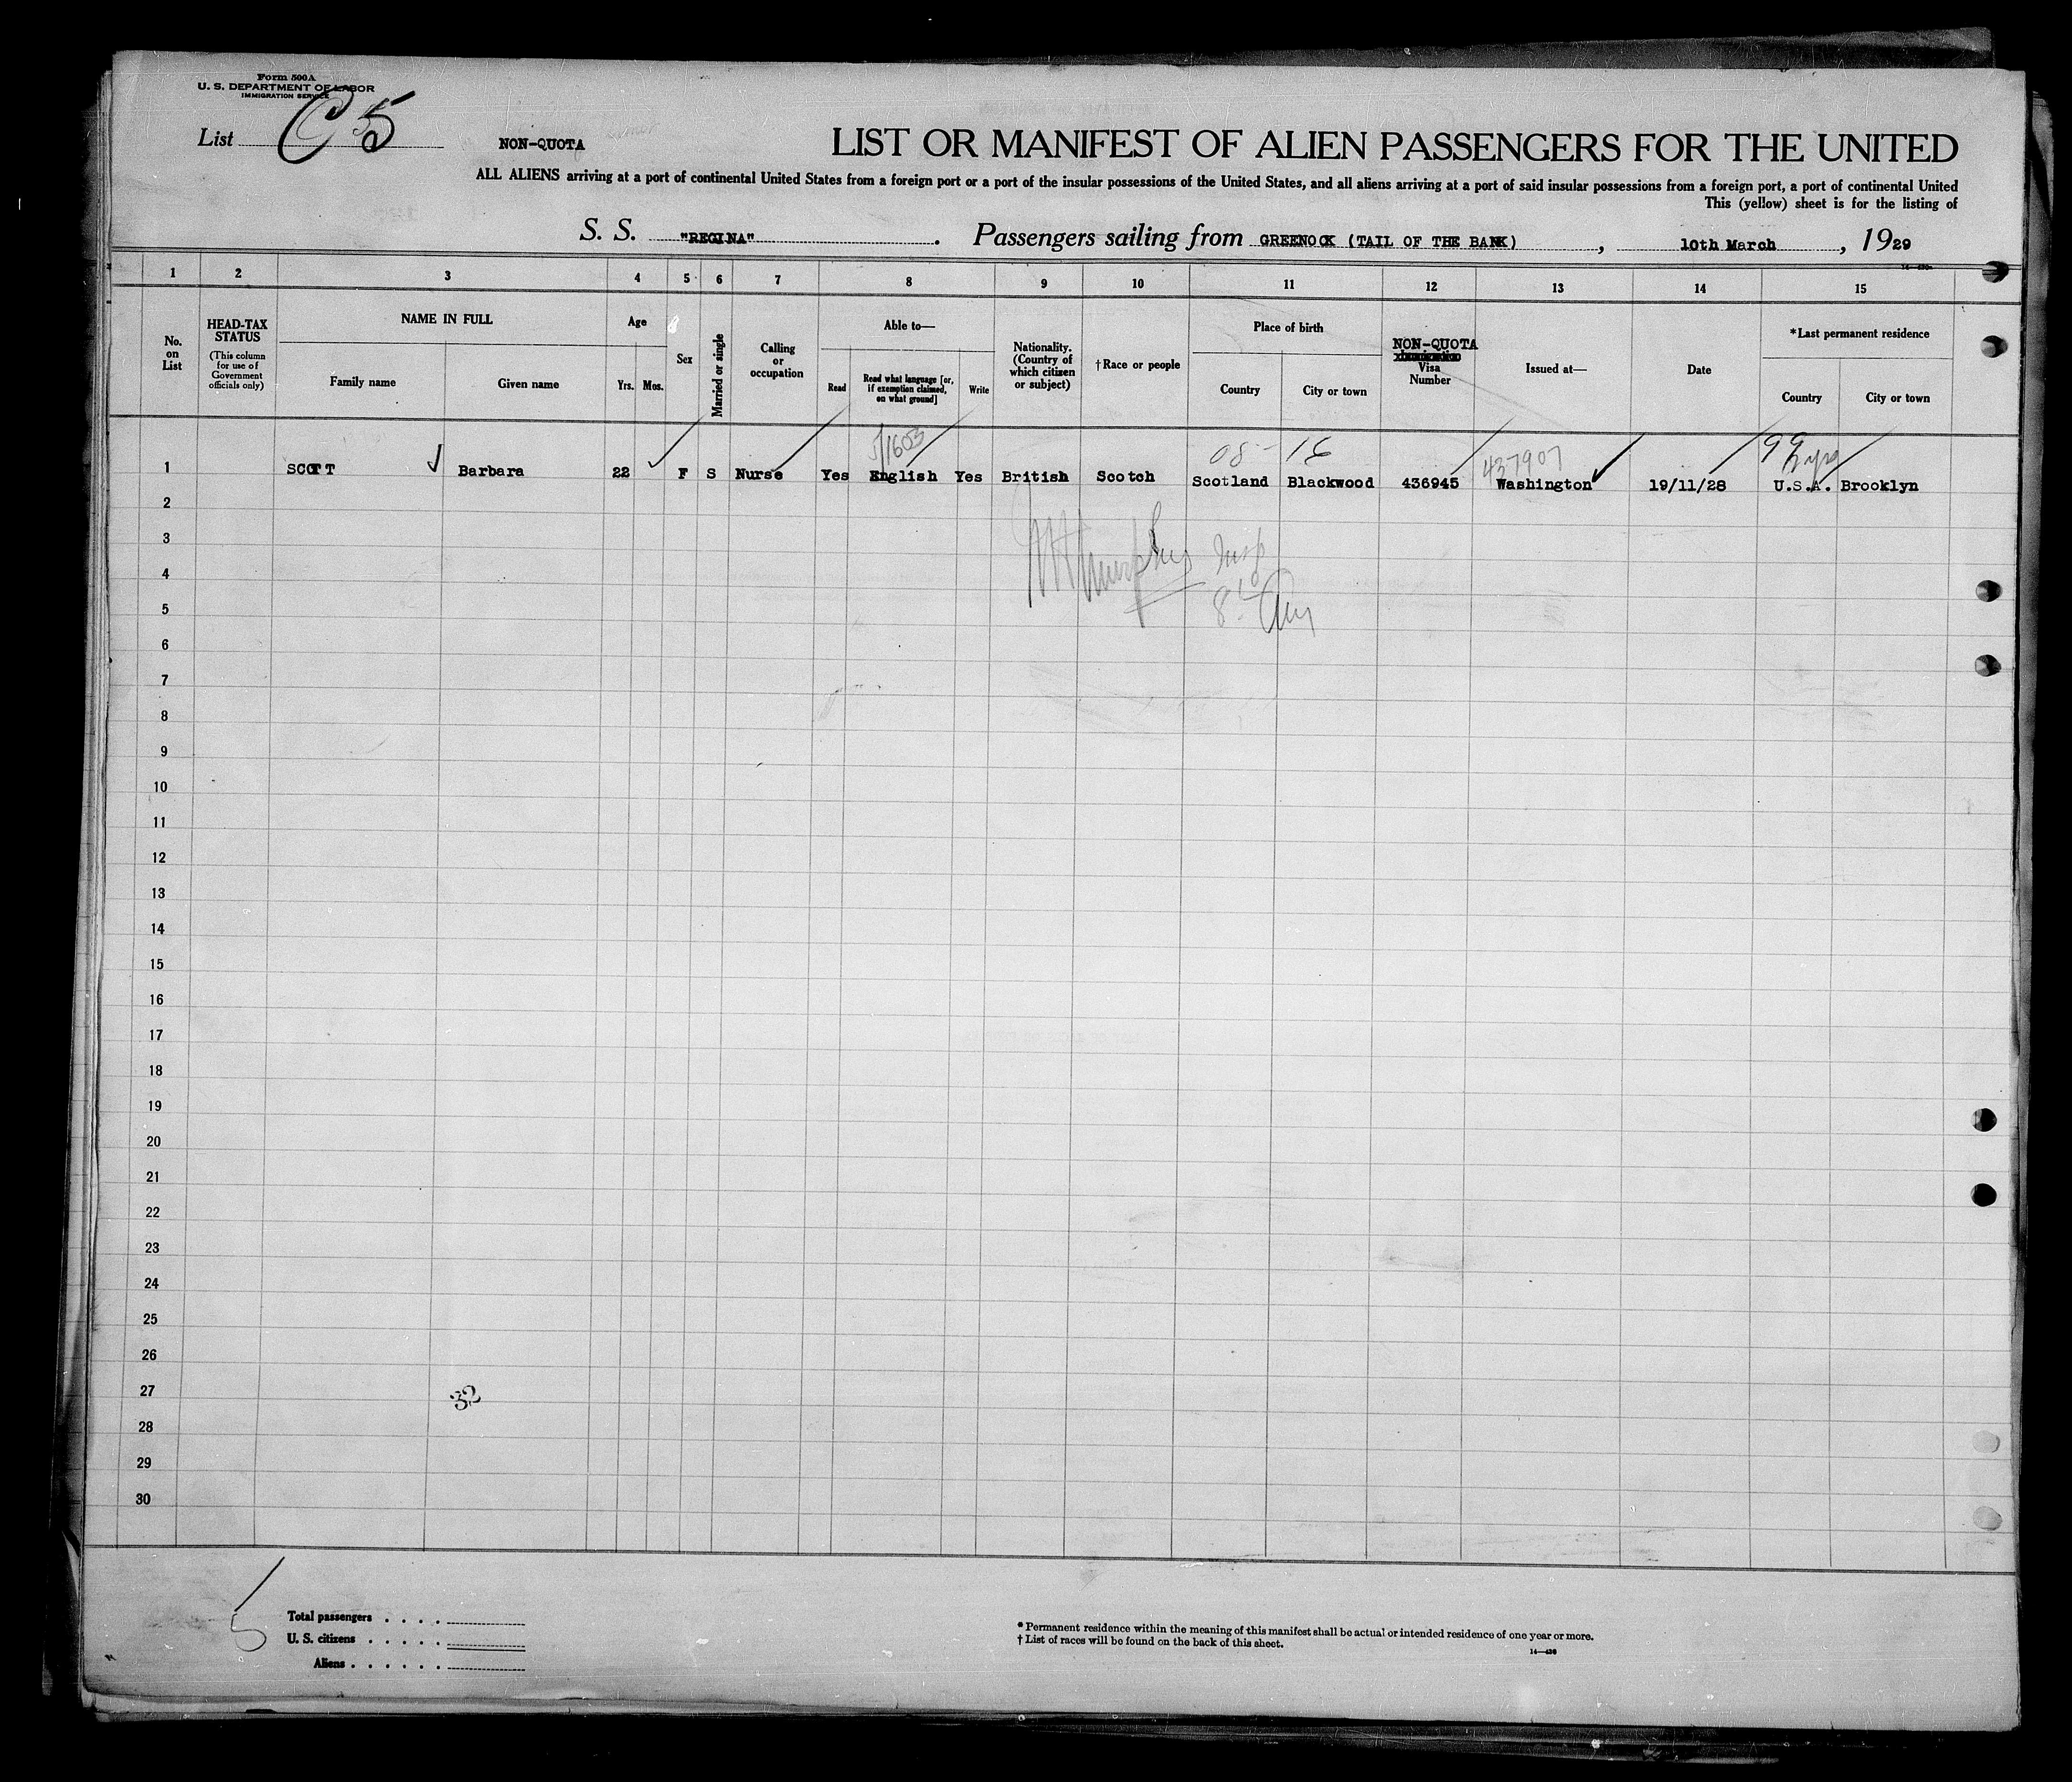 Form 500A
U. S. DEPARTMENT OF LABOR
IMMIGRATION SERVICE
List C 5
NON-QUOTA
LIST OR MANIFEST OF ALIEN PASSENGERS FOR THE UNITED
ALL ALIENS arriving at a port of continental United States from a foreign port or a port of the insular possessions of the United States, and all aliens arriving at a port of said insular possessions from a foreign port, a port of continental United
This (yellow) sheet is for the listing of
S. S. "REGINA". Passengers sailing from GREENOCK (TAIL OF THE BANK), 10th March, 1929
1 2 3 4 5 6 7 8 9 10 11 12 13 14 15
No. on List
HEAD-TAX STATUS
(This column for use of Government officials only)
NAME IN FULL
Family name
Given name
Age
Yrs. Mos.
Sex
Married or single
Calling or occupation
Able to—
Read
Read what language [or, if exemption claimed, on what ground]
Write
Nationality. (Country of which citizen or subject)
†Race or people
Place of birth
Country
City or town
NON-QUOTA
Visa Number
Issued at—
Date
*Last permanent residence
Country
City or town
08 - 16
437907
99
1 SCOTT Barbara 22 F S Nurse Yes English Yes British Scotch Scotland Blackwood 436945 Washington 19/11/28 U.S.A. Brooklyn
2
3
4
5
6
7
8
9
10
11
12
13
14
15
16
17
18
19
20
21
22
23
24
25
26
27
32
28
29
30
5
Total passengers . . . .
U. S. citizens . . . . .
Aliens . . . . . .
* Permanent residence within the meaning of this manifest shall be actual or intended residence of one year or more.
† List of races will be found on the back of this sheet.